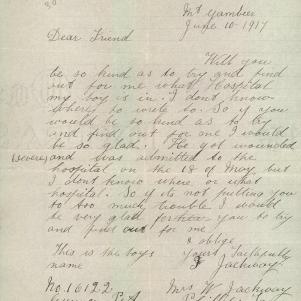 Mt Gambier
June 10 1917
Dear Friend
Will you
be so kind as to try and find
out for me what Hospital
my boy is in. I dont know
where to write to. So if you
would be so kind as to try
and find out for me I would
be so glad. He got wounded
severe and was admitted to the
hospital on the 18 of May but
I dont know where or what
hospital. So if its not putting you
to too much trouble I would
be very glad for you to try
and find out for me
& oblige
This is the boys Yours faithfully
name J Jackway
No. 16122 Mrs W Jackway